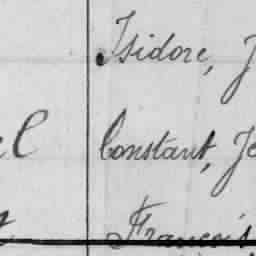 Isidore, J
el Constant, Je
t François